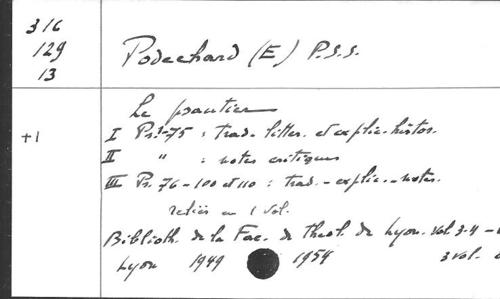 316
129
13
Podechard (E) P.S.S.
+1
Le psautier
I Ps. 1-75 : trad. litter. et explic. histor.
II " : notes critiques
III Ps. 76-100 et 110 : trad. - explic. - notes.
reliés en 1 vol.
Biblioth. de la Fac. de Theol. de Lyon. vol. 3-4 -
Lyon 1949 1954 3 vol.